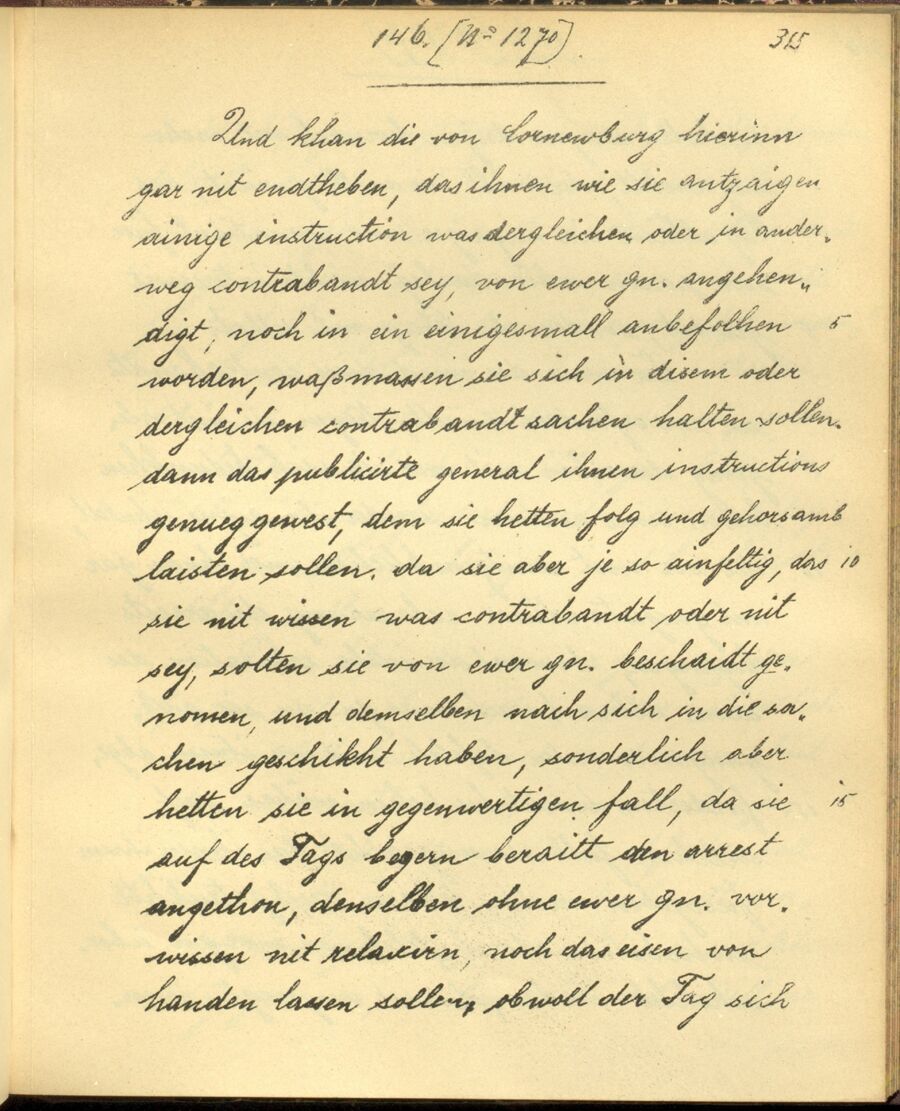 146. [Nº 1270]
315
Und khan die von Cornewburg hierinn
gar nit endtheben, das ihnen wie sie antzaigen
ainige instruction was dergleichen oder in ander-
weg contrabandt sey, von ewer gn. angehen-
digt, noch in ein einigesmall anbefolhen 5
worden, waßmassen sie sich in disem oder
dergleichen contrabandt sachen halten sollen.
dann das publicirte general ihnen instructions
genueg gewest, dem sie hetten folg und gehorsamb
laisten sollen. da sie aber je so ainfeltig, das 10
sie nit wissen was contrabandt oder nit
sey, solten sie von ewer gn. beschaidt ge-
nomen, und demselben nach sich in die sa-
chen geschikht haben, sonderlich aber
hetten sie in gegenwertigen fall, da sie 15
auf des Tags begern beraitt den arrest
angethon, denselben ohne ewer gn. vor-
wissen nit relaxirn, noch das eisen von
handen lassen sollen, obwoll der Tag sich